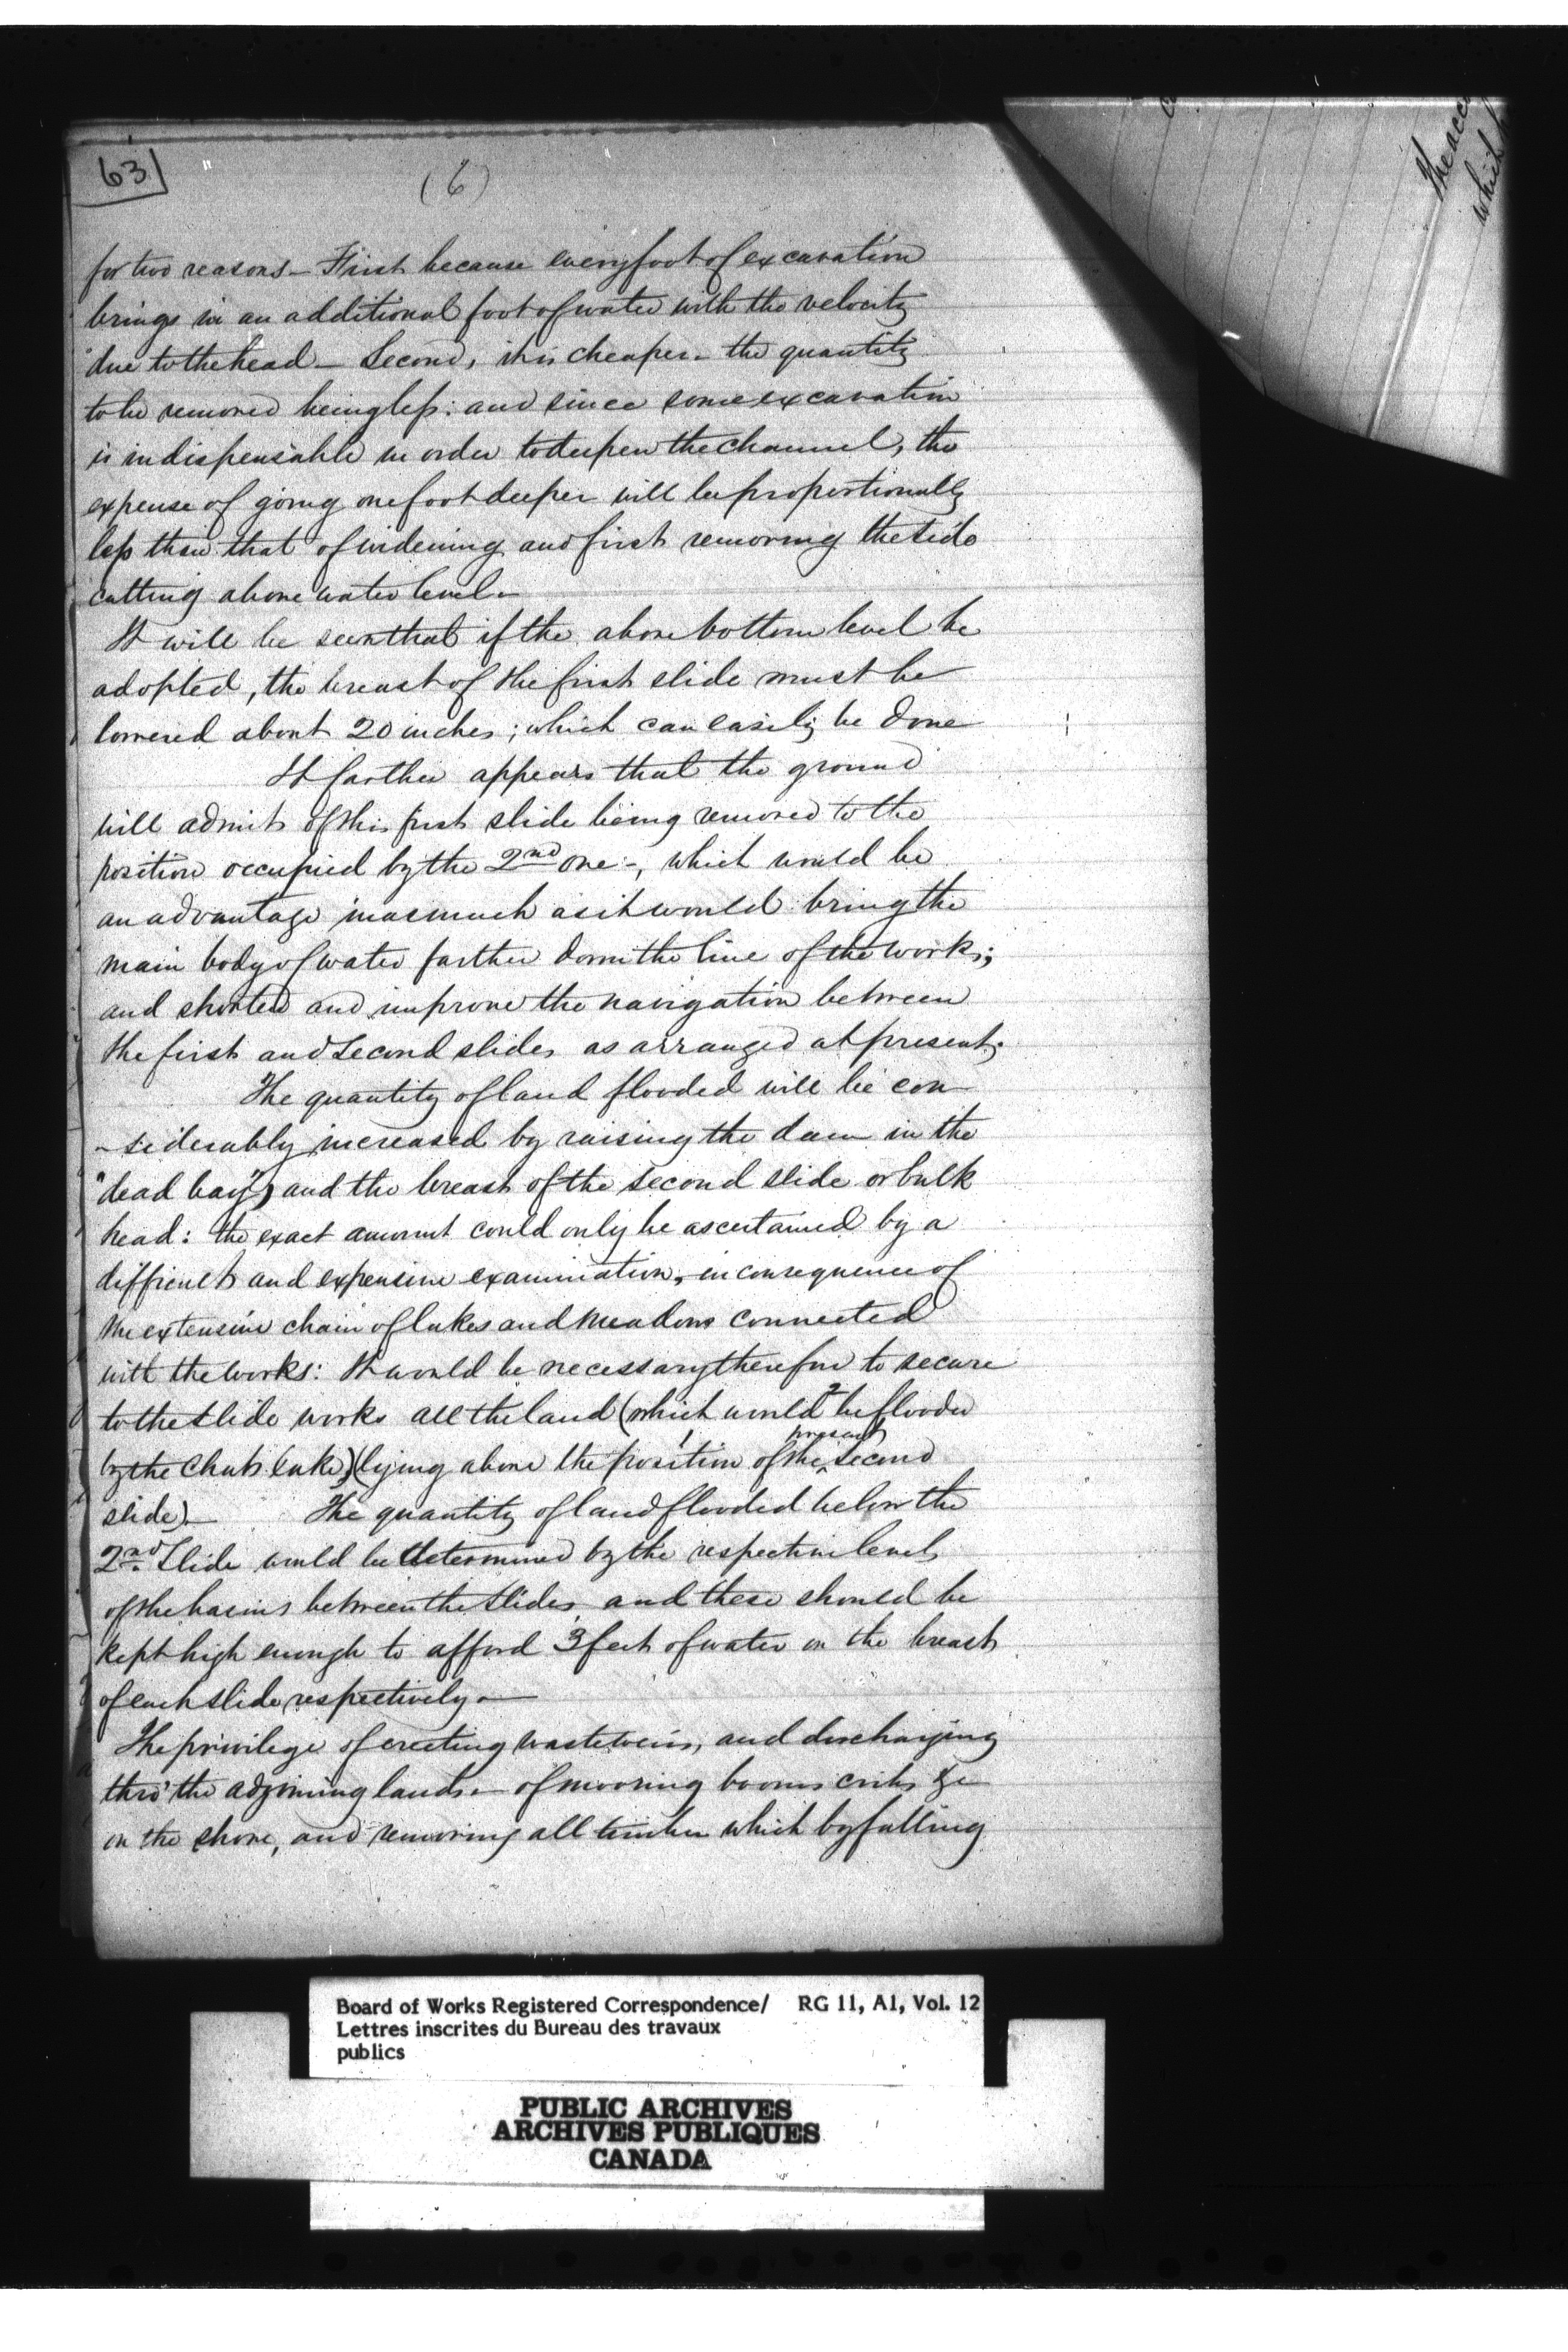 63
(6)
for two reasons – First because every foot of excavation
brings in an additional foot of water with the velocity
due to the head – Second, it is cheaper – the quantity
to be removed being less: and since some excavation
is indispensable in order to deepen the channel, the
expense of going one foot deeper will be proportionally
less than that of widening and first removing the side
cutting above water level –
It will be seen that if the above bottom level be
adopted, the breast of the first slide must be
lowered about 20 inches; which can easily be done
It farther appears that the ground
will admit of this first slide being removed to the
position occupied by the 2nd one –, which would be
an advantage inasmuch as it would bring the
main body of water farther down the line of the works;
and shorten and improve the navigation between
the first and second slides as arranged at present.
The quantity of land flooded will be con
-siderably increased by raising the dam in the
"dead bay", and the breast of the second slide or bulk
head: the exact amount could only be ascertained by a
difficult and expensive examination, in consequence of
the extensive chain of lakes and meadows connected
with the works: It would be necessary therefore to secure
to the slide works all the land (which would 2 be flooded
by the Chats Lake) (lying above the 1 position of the present second
slide) – The quantity of land flooded below the
2nd Slide would be determined by the respective levels
of the basins between the slides and these should be
kept high enough to afford 3 feet of water on the breast
of each slide respectively –
The privilege of erecting wasteweirs, and discharging
thro' the adjoining lands – of mooring booms cribs &c
on the shore, and removing all timber which by falling
The acc
which
Board of Works Registered Correspondence/ RG 11, A1, Vol. 12
Lettres inscrites du Bureau des travaux
publics
PUBLIC ARCHIVES
ARCHIVES PUBLIQUES
CANADA